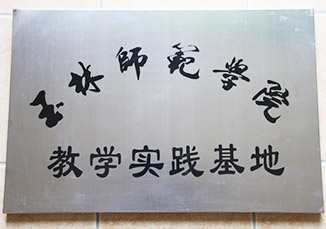 玉林師範学院
教学实践基地